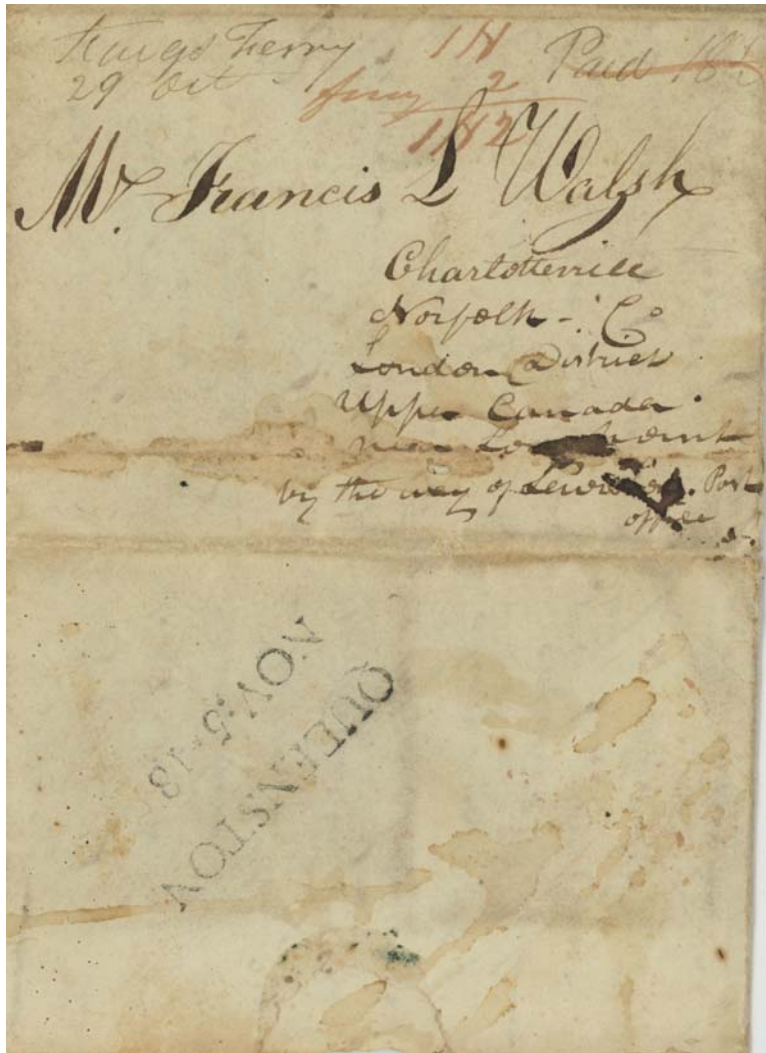 Kings Ferry 1N Paid 18½
29 Oct ferry 2
1N2
Mr. Francis L Walsh
Charlotteville
Norfolk - Co
London District
Upper Canada
near Long Point
by the way of Lewiston. Post
office
QUEENSTON
NOV:5·18